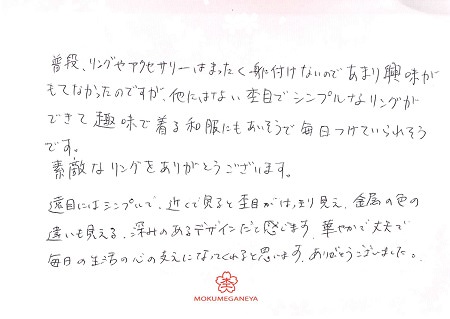 普段、リングやアクセサリーはまったく身に付けないのであまり興味が
もてなかったのですが、他にはない杢目でシンプルなリングが
できて趣味で着る和服にもあいそうで毎日つけていられそう
です。
素敵なリングをありがとうございます。
遠目にはシンプルで、近くで見ると杢目がはっきり見え、金属の色の
違いも見える、深みのあるデザインだと感じます。華やかで丈夫で
毎日の生活の心の支えになってくれると思います。ありがとうございました。
杢
MOKUMEGANEYA